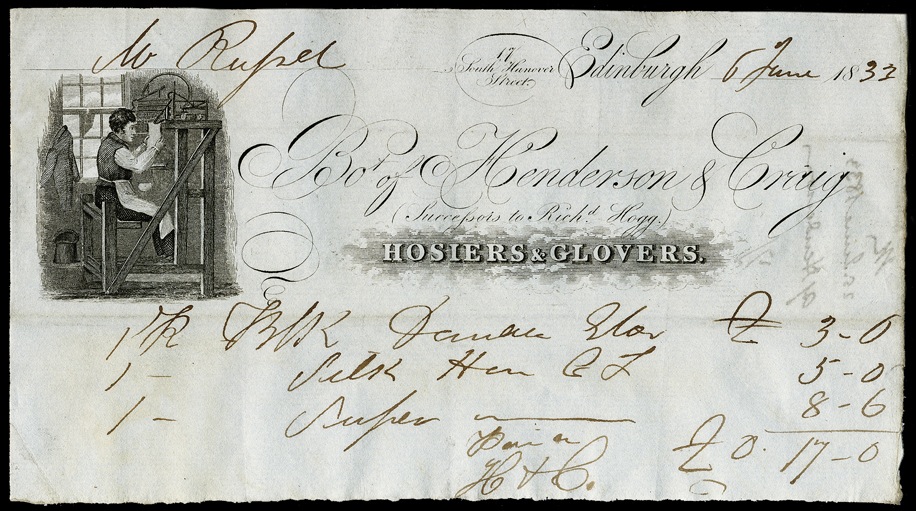 Mr Russel
17
South Hanover
Street.
Edinburgh 6 June 1833
Bot. of Henderson & Craig
(Successors to Richd. Hogg.)
HOSIERS & GLOVERS.
1 Blk £ 3-6
1- Silk C L 5-0
1- Super — 8-6
H & C. £ 0. 17-0